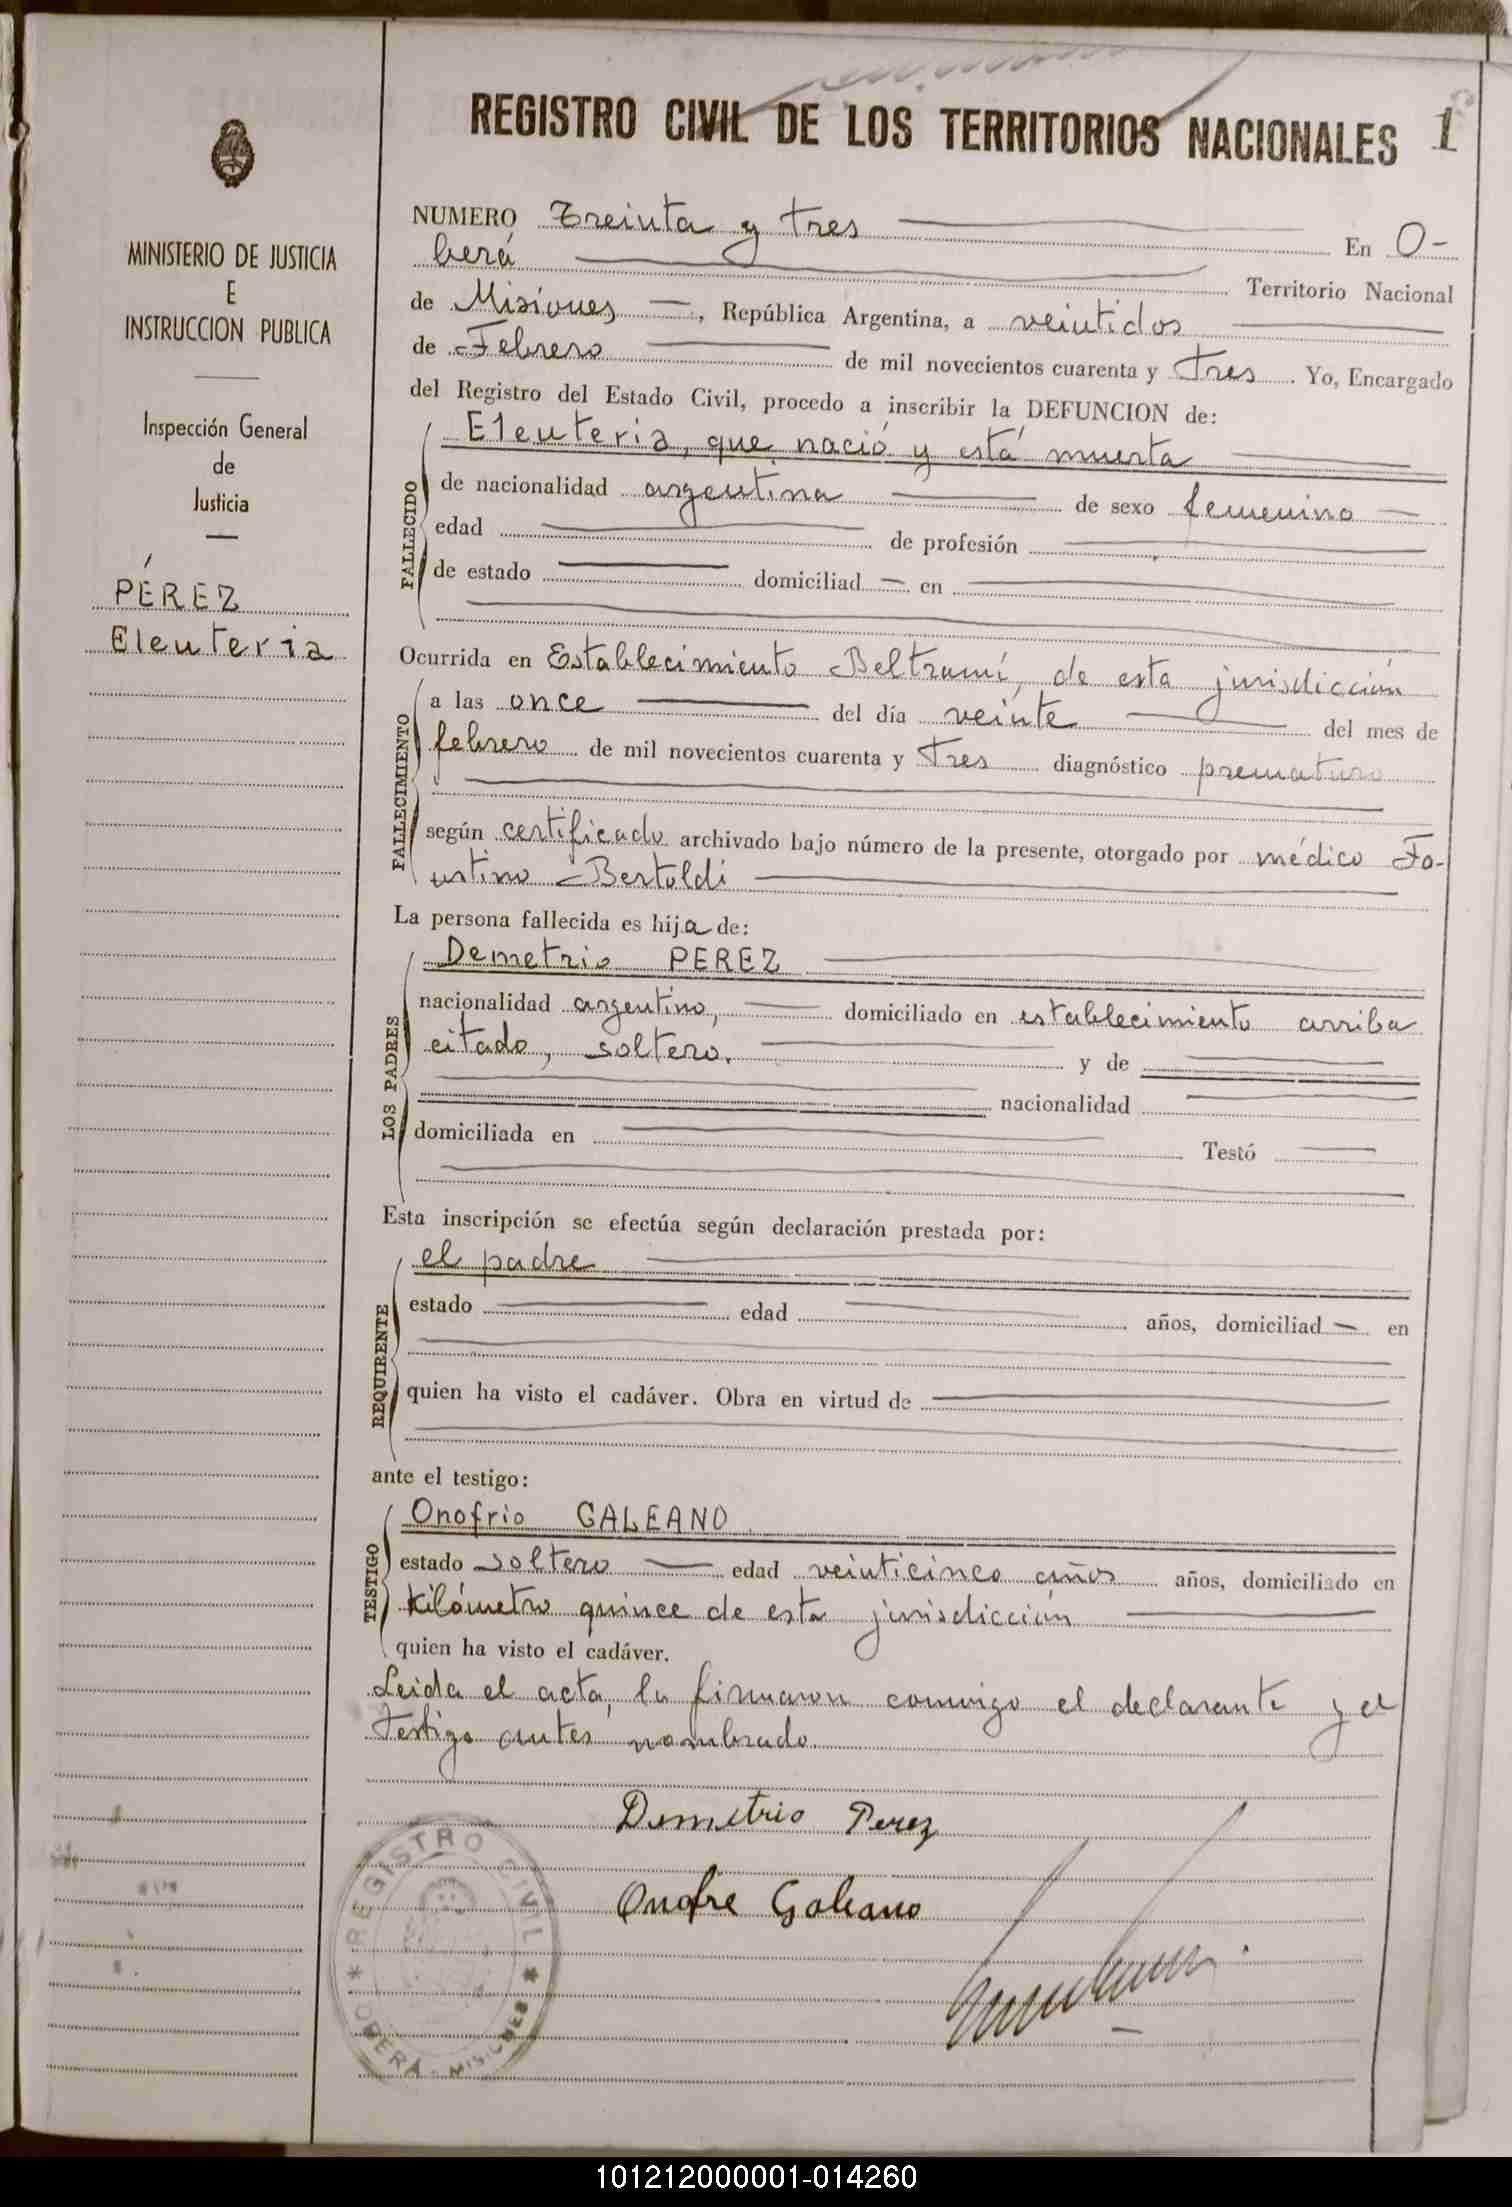 REGISTRO CIVIL DE LOS TERRITORIOS NACIONALES 1
MINISTERIO DE JUSTICIA
E
INSTRUCCION PUBLICA
Inspección General
de
Justicia
PÉREZ
Eleuteria
NUMERO Treinta y tres En O-
berá Territorio Nacional
de Misiones, República Argentina, a veintidos
de Febrero de mil novecientos cuarenta y Tres. Yo, Encargado
del Registro del Estado Civil, procedo a inscribir la DEFUNCION de:
Eleuteria, que nació y está muerta
FALLECIDO
de nacionalidad argentina de sexo femenino
edad de profesión
de estado domiciliad en
Ocurrida en Establecimiento Beltramí, de esta jurisdicción
FALLECIMIENTO
a las once del día veinte del mes de
febrero de mil novecientos cuarenta y Tres diagnóstico prematuro
según certificado archivado bajo número de la presente, otorgado por médico Fa-
ustino Bertoldi
La persona fallecida es hija de:
Demetrio PEREZ
LOS PADRES
nacionalidad argentino, domiciliado en establecimiento arriba
citado, soltero. y de
nacionalidad
domiciliada en Testó
Esta inscripción se efectúa según declaración prestada por:
el padre
REQUIRENTE
estado edad años, domiciliad en
quien ha visto el cadáver. Obra en virtud de
ante el testigo:
Onofrio GALEANO
TESTIGO
estado soltero edad veinticinco años años, domiciliado en
Kilómetro quince de esta jurisdicción
quien ha visto el cadáver.
Leida el acta, la firmaron conmigo el declarante y el
testigo antes nombrado.
Demetrio Perez
Onofre Galeano
REGISTRO CIVIL
OBERÁ - MISIONES
101212000001-014260